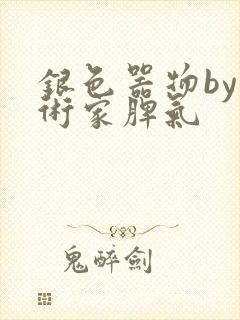 銀色器物by
術家脾氣
鬼醉劍